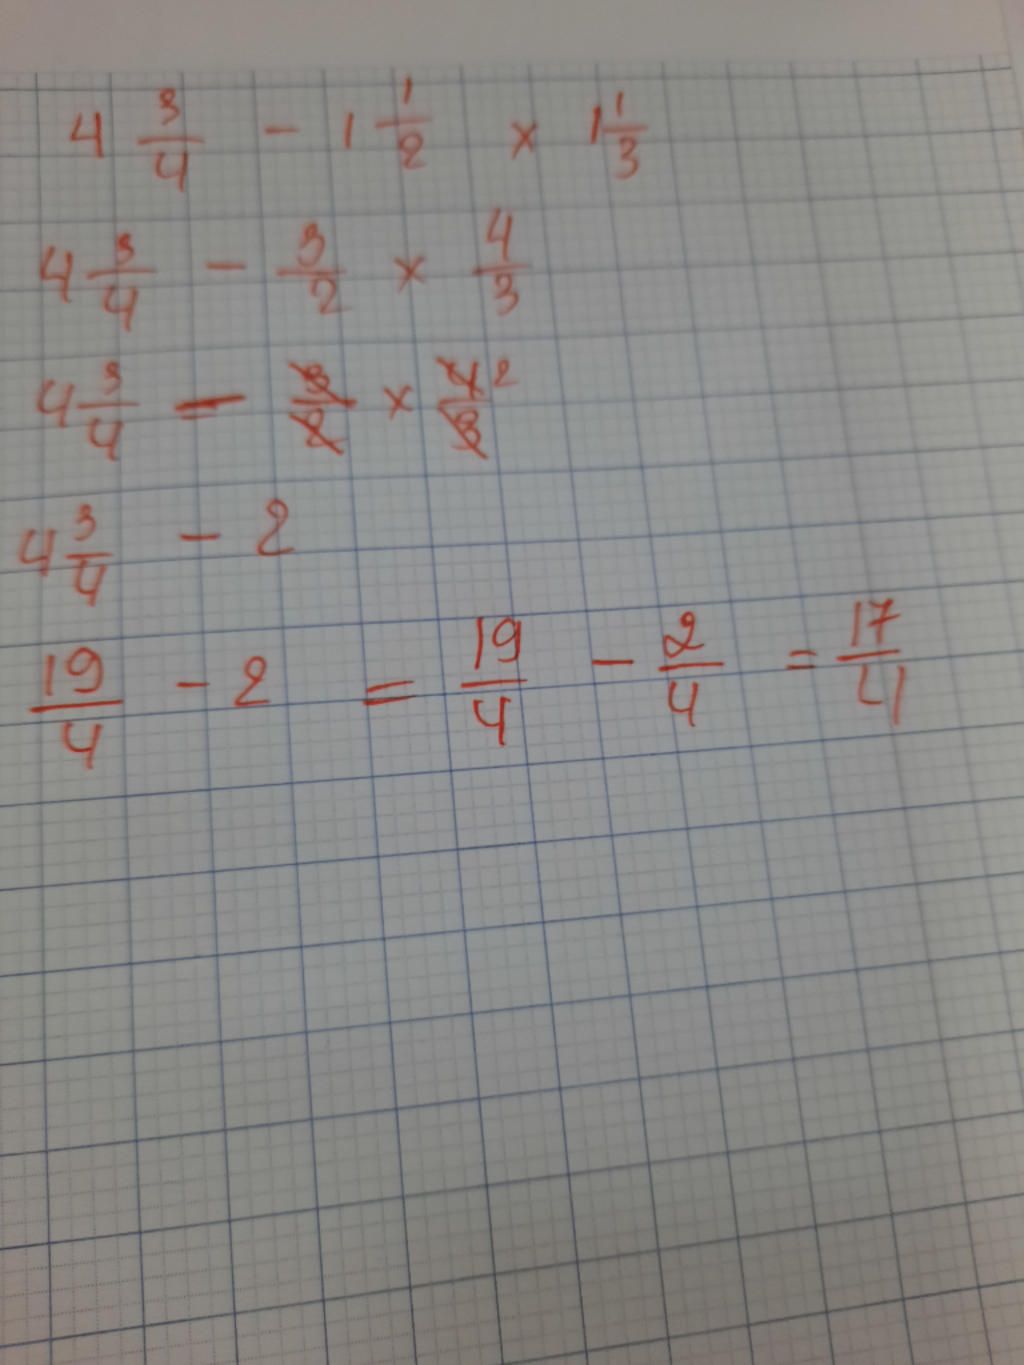 4 3/4 − 1 1/2 × 1 1/3
4 3/4 − 3/2 × 4/3
4 3/4 − 3/2 × 4/3 2
4 3/4 − 2
19/4 − 2 = 19/4 − 2/4 = 17/4